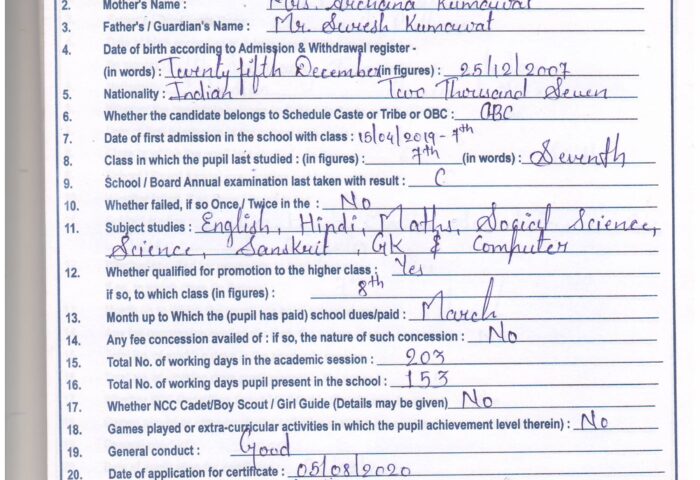 2. Mother's Name : Mrs. Archana Kumawat
3. Father's / Guardian's Name : Mr. Suresh Kumawat
4. Date of birth according to Admission & Withdrawal register -
(in words) : Twenty fifth December (in figures) : 25/12/2007
5. Nationality : Indian Two Thousand Seven
6. Whether the candidate belongs to Schedule Caste or Tribe or OBC : OBC
7. Date of first admission in the school with class : 15/04/2019 - 7th
8. Class in which the pupil last studied : (in figures) : 7th (in words) : Seventh
9. School / Board Annual examination last taken with result : C
10. Whether failed, if so Once/ Twice in the : No
11. Subject studies : English, Hindi, Maths, Sogical Science,
Science, Sanskrit, GK & Computer
12. Whether qualified for promotion to the higher class : Yes
if so, to which class (in figures) : 8th
13. Month up to Which the (pupil has paid) school dues/paid : March
14. Any fee concession availed of : if so, the nature of such concession : No
15. Total No. of working days in the academic session : 203
16. Total No. of working days pupil present in the school : 153
17. Whether NCC Cadet/Boy Scout / Girl Guide (Details may be given) No
18. Games played or extra-curricular activities in which the pupil achievement level therein) : No
19. General conduct : Good
20. Date of application for certificate : 05/08/2020